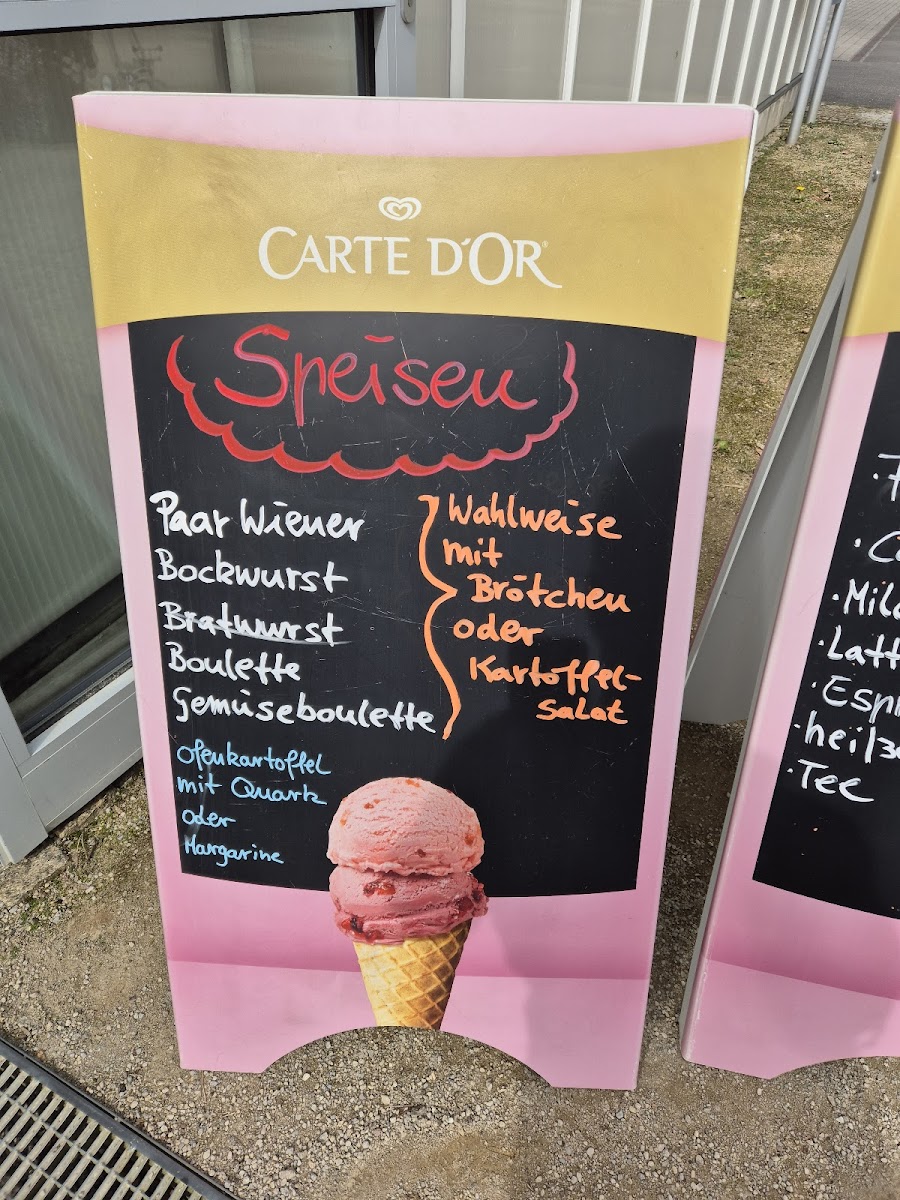 CARTE D'OR
Speisen
Paar Wiener
Bockwurst
Bratwurst
Boulette
Gemüseboulette
Wahlweise
mit
Brötchen
oder
Kartoffel-
salat
Ofenkartoffel
mit Quark
oder
Margarine
Tee